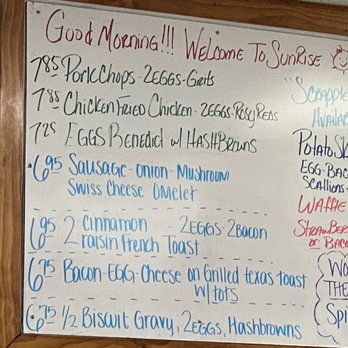 Good Morning!!! Welcome To SunRise
7.85 Pork Chops - 2EGGS - Grits
7.85 Chicken Fried Chicken - 2EGGS - Rosy Reds
7.25 EGGS Benedict w/ HASHBrowns
6.95 Sausage - Onion - Mushroom
Swiss Cheese OMelet
6.95 2 Cinnamon 2EGGS - 2Bacon
raisin French Toast
6.75 Bacon - EGG - Cheese on Grilled Texas toast
w/ tots
6.75 1/2 Biscuit Gravy, 2EGGS, Hashbrowns
"Scrapple
Availa
Potato Sk
EGG - Bac
Scallions
Waffle
Strawber
or Bac
THE
Spi